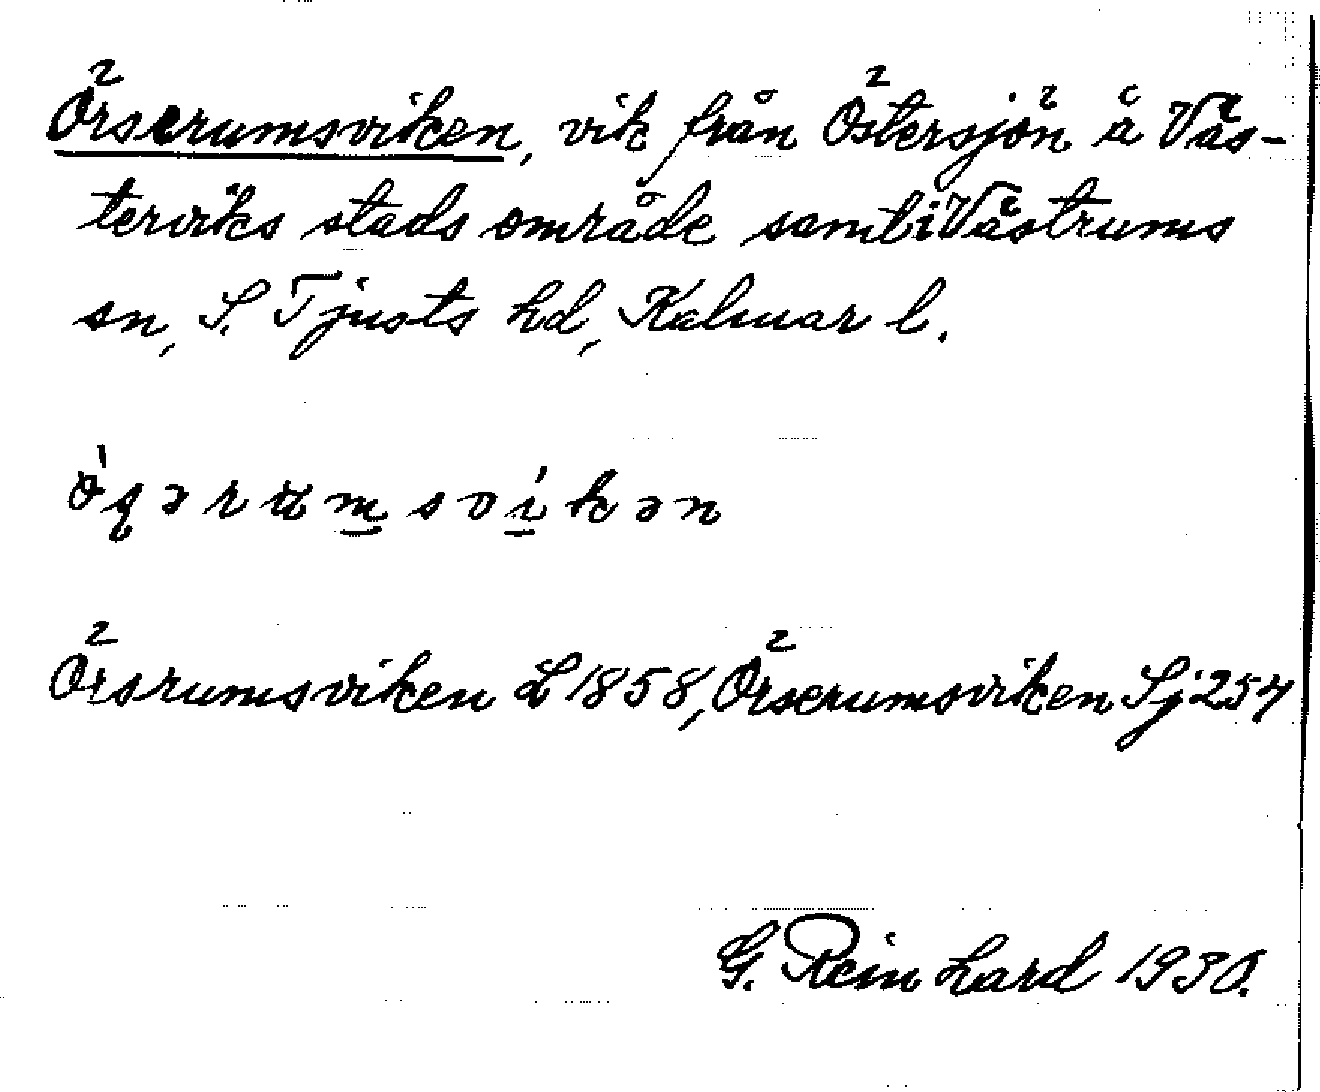 Örserumsviken, vik från Östersjön å Väs-
terviks stads område samt i Västrums
sn, S. Tjusts hd, Kalmar l.
Örsrumsviken L 1858, Örserumsviken Sj 254
G. Reinhard 1930.